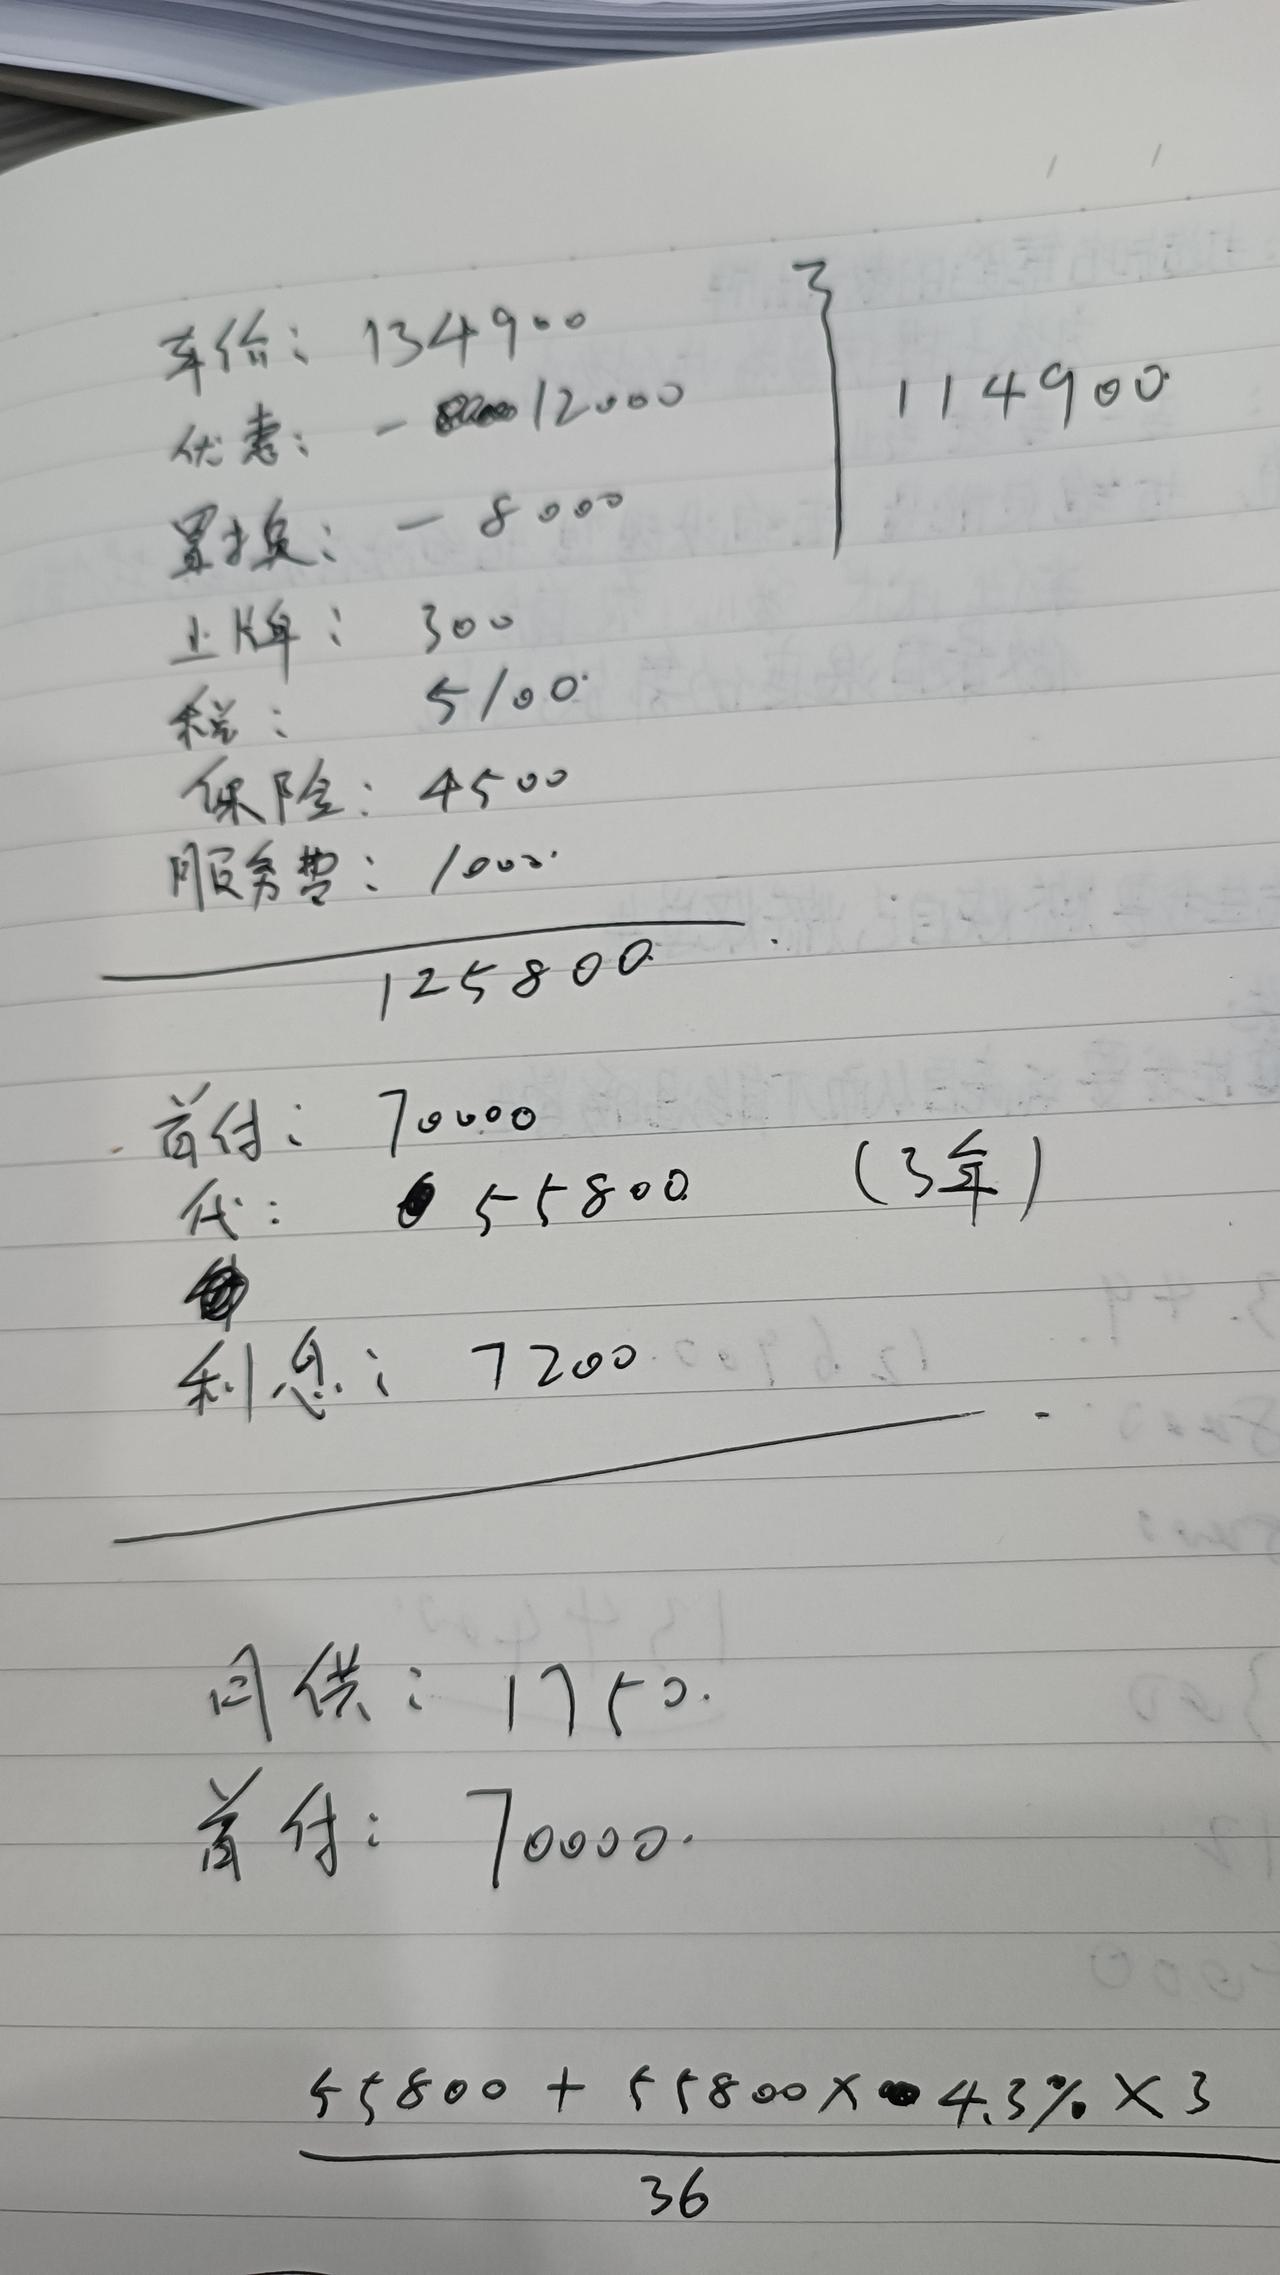 车价: 134900
优惠: - 12000
置换: - 8000
} 114900
上牌: 300
税: 5100.
保险: 4500
服务费: 1000.
125800.
首付: 70000
代: 55800. (3年)
利息: 7200
月供: 1750.
首付: 70000.
55800 + 55800 × 4.3% × 3
36